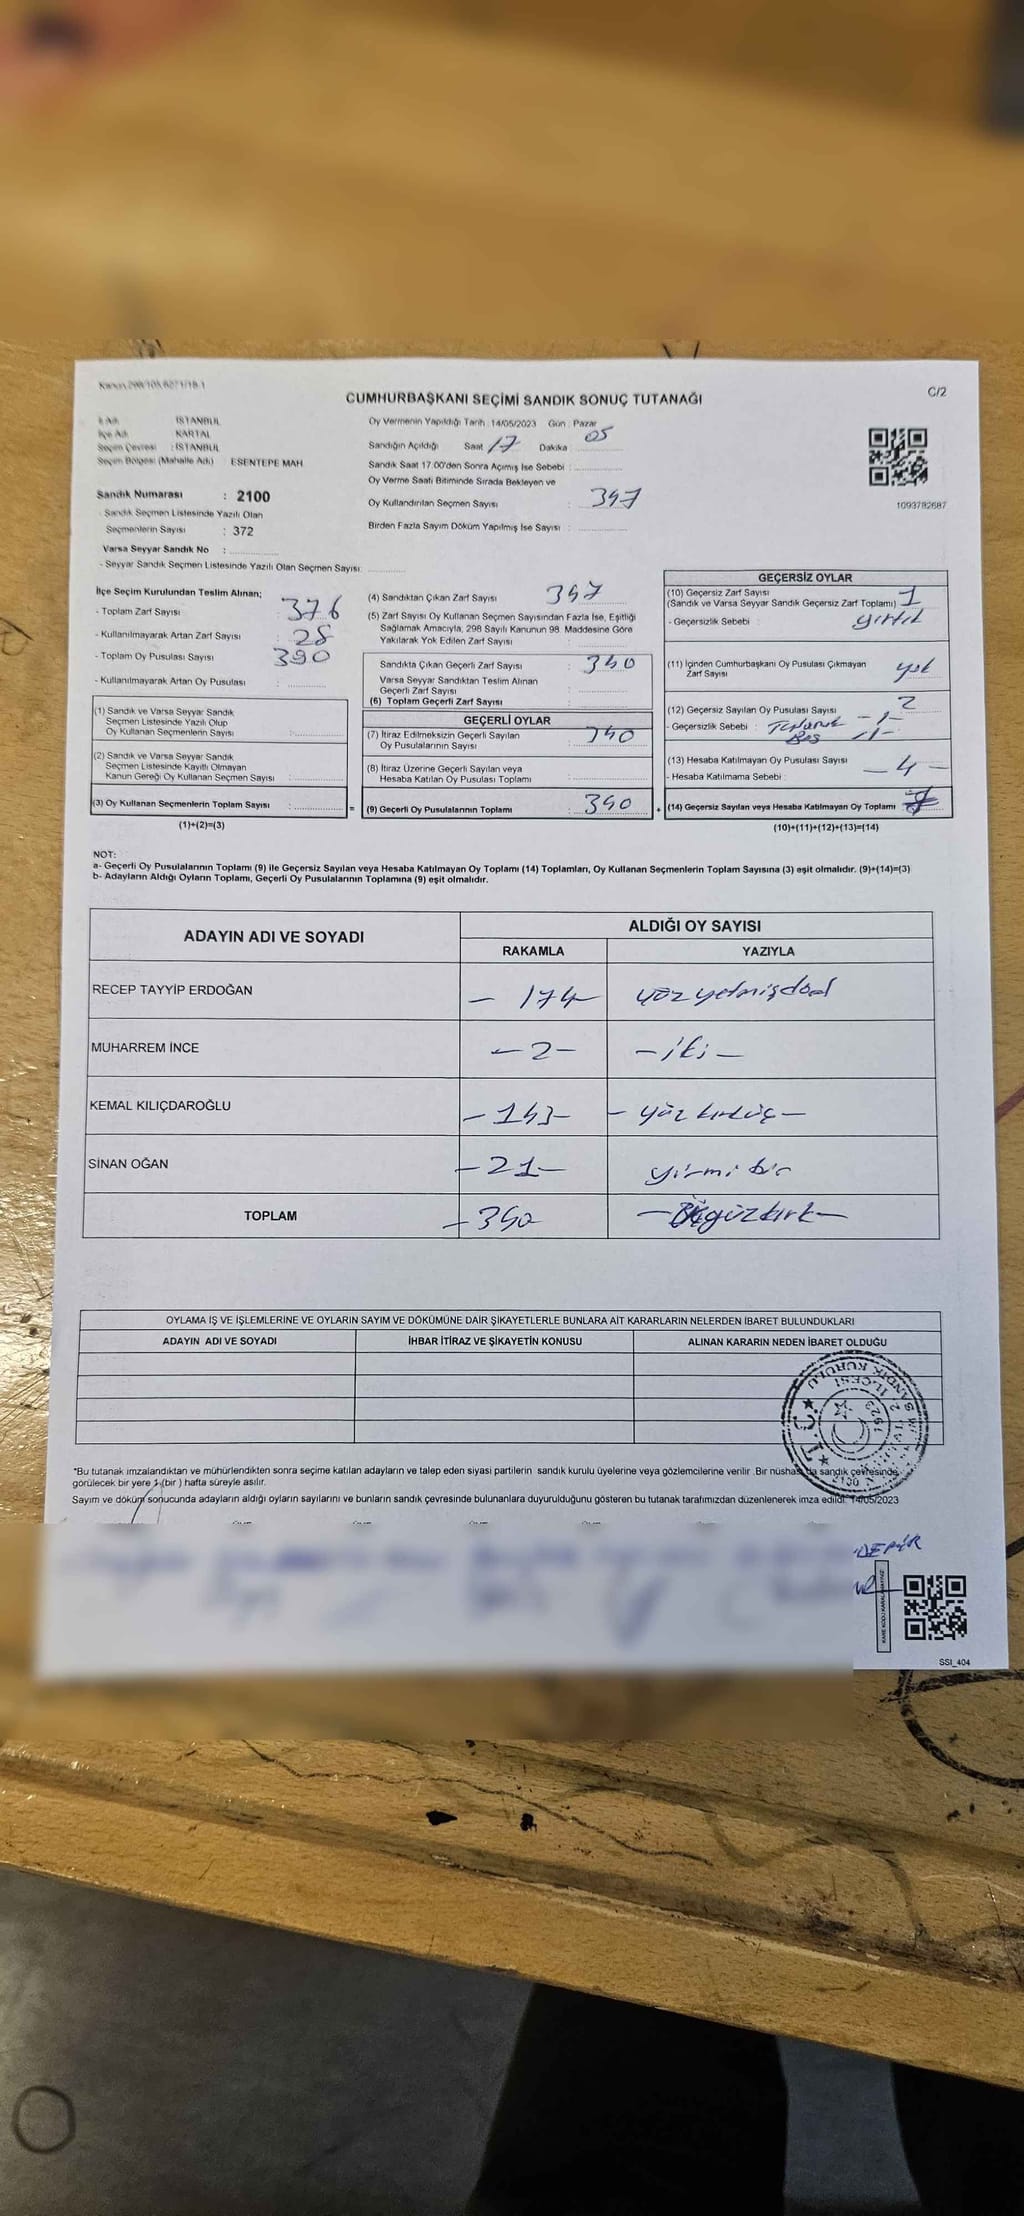 Kanun 298/105,6271/18.1
C/2
CUMHURBAŞKANI SEÇİMİ SANDIK SONUÇ TUTANAĞI
İl Adı : İSTANBUL
İlçe Adı : KARTAL
Seçim Çevresi : İSTANBUL
Seçim Bölgesi (Mahalle Adı) ESENTEPE MAH
Sandık Numarası : 2100
- Sandık Seçmen Listesinde Yazılı Olan
Seçmenlerin Sayısı : 372
Varsa Seyyar Sandık No :
- Seyyar Sandık Seçmen Listesinde Yazılı Olan Seçmen Sayısı:
Oy Vermenin Yapıldığı Tarih : 14/05/2023 Gün : Pazar
Sandığın Açıldığı Saat 17 Dakika 05
Sandık Saat 17.00'den Sonra Açımış İse Sebebi :
Oy Verme Saati Bitiminde Sırada Bekleyen ve
Oy Kullandırılan Seçmen Sayısı : 347
Birden Fazla Sayım Döküm Yapılmış İse Sayısı :
1093782687
İlçe Seçim Kurulundan Teslim Alınan;
- Toplam Zarf Sayısı 376
- Kullanılmayarak Artan Zarf Sayısı : 28
- Toplam Oy Pusulası Sayısı 390
- Kullanılmayarak Artan Oy Pusulası :
(1) Sandık ve Varsa Seyyar Sandık
Seçmen Listesinde Yazılı Olup
Oy Kullanan Seçmenlerin Sayısı :
(2) Sandık ve Varsa Seyyar Sandık
Seçmen Listesinde Kayıtlı Olmayan
Kanun Gereği Oy Kullanan Seçmen Sayısı :
(3) Oy Kullanan Seçmenlerin Toplam Sayısı :
(1)+(2)=(3)
=
(4) Sandıktan Çıkan Zarf Sayısı : 347
(5) Zarf Sayısı Oy Kullanan Seçmen Sayısından Fazla İse, Eşitliği
Sağlamak Amacıyla, 298 Sayılı Kanunun 98. Maddesine Göre
Yakılarak Yok Edilen Zarf Sayısı :
Sandıkta Çıkan Geçerli Zarf Sayısı : 340
Varsa Seyyar Sandıktan Teslim Alınan
Geçerli Zarf Sayısı :
(6) Toplam Geçerli Zarf Sayısı :
GEÇERLİ OYLAR
(7) İtiraz Edilmeksizin Geçerli Sayılan
Oy Pusulalarının Sayısı : 340
(8) İtiraz Üzerine Geçerli Sayılan veya
Hesaba Katılan Oy Pusulası Toplamı :
(9) Geçerli Oy Pusulalarının Toplamı : 340
+
GEÇERSİZ OYLAR
(10) Geçersiz Zarf Sayısı
(Sandık ve Varsa Seyyar Sandık Geçersiz Zarf Toplamı) : 1
- Geçersizlik Sebebi : yırtık
(11) İçinden Cumhurbaşkanı Oy Pusulası Çıkmayan
Zarf Sayısı : yok
(12) Geçersiz Sayılan Oy Pusulası Sayısı : 2
- Geçersizlik Sebebi : - 1 -
Boş - 1 -
(13) Hesaba Katılmayan Oy Pusulası Sayısı
- 4 -
- Hesaba Katılmama Sebebi :
(14) Geçersiz Sayılan veya Hesaba Katılmayan Oy Toplamı : 7
(10)+(11)+(12)+(13)=(14)
NOT:
a- Geçerli Oy Pusulalarının Toplamı (9) ile Geçersiz Sayılan veya Hesaba Katılmayan Oy Toplamı (14) Toplamları, Oy Kullanan Seçmenlerin Toplam Sayısına (3) eşit olmalıdır. (9)+(14)=(3)
b- Adayların Aldığı Oyların Toplamı, Geçerli Oy Pusulalarının Toplamına (9) eşit olmalıdır.
ADAYIN ADI VE SOYADI
ALDIĞI OY SAYISI
RAKAMLA YAZIYLA
RECEP TAYYİP ERDOĞAN - 174 - yüz yetmişdört
MUHARREM İNCE - 2 - - iki -
KEMAL KILIÇDAROĞLU - 143 - - yüz kırküç -
SİNAN OĞAN - 21 - yirmi bir
TOPLAM - 340 - Üçyüzkırk -
OYLAMA İŞ VE İŞLEMLERİNE VE OYLARIN SAYIM VE DÖKÜMÜNE DAİR ŞİKAYETLERLE BUNLARA AİT KARARLARIN NELERDEN İBARET BULUNDUKLARI
ADAYIN ADI VE SOYADI İHBAR İTİRAZ VE ŞİKAYETİN KONUSU ALINAN KARARIN NEDEN İBARET OLDUĞU
T.C.
SANDIK KURULU
*Bu tutanak imzalandıktan ve mühürlendikten sonra seçime katılan adayların ve talep eden siyasi partilerin sandık kurulu üyelerine veya gözlemcilerine verilir. Bir nüshası da sandık çevresinde
görülecek bir yere 1 (bir ) hafta süreyle asılır.
Sayım ve döküm sonucunda adayların aldığı oyların sayılarını ve bunların sandık çevresinde bulunanlara duyurulduğunu gösteren bu tutanak tarafımızdan düzenlenerek imza edildi. 14/05/2023
SSI_404